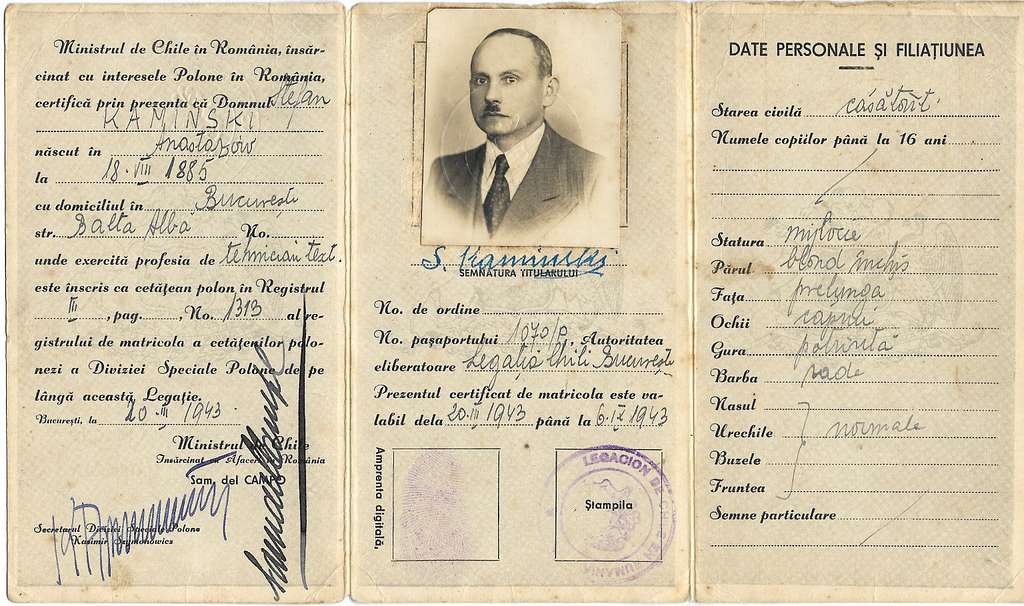 Ministrul de Chile în România, însăr-
cinat cu interesele Polone în România,
certifică prin prezenta că Domnul Stefan
KAMINSKI
născut în Anastazow
la 18.VIII 1885
cu domiciliul în București
str. Balta Albă No.
unde exercită profesia de tehnician text.
este înscris ca cetățean polon în Registrul
III, pag. , No. 1313 al re-
gistrului de matricola a cetățenilor polo-
nezi a Diviziei Speciale Polone de pe
lângă această Legație.
București, la 20.III 1943
Ministrul de Chile
Însărcinat cu Afacerile România
Sam. del CAMPO
Secretarul Diviziei Speciale Polone
Kasimir Szymonowicz
S. Kaminski
SEMNĂTURA TITULARULUI
No. de ordine
No. pașaportului 1070/P, Autoritatea
eliberatoare Legația Chili București
Prezentul certificat de matricola este va-
labil dela 20.III 1943 până la 6.IX 1943
Amprenta digitală,
Ștampila
LEGACION DE CHILE EN RUMANIA
DATE PERSONALE ȘI FILIAȚIUNEA
Starea civilă căsătorit
Numele copiilor până la 16 ani
Statura mijlocie
Părul blond închis
Fața prelungă
Ochii căprui
Gura potrivită
Barba rade
Nasul
Urechile normale
Buzele
Fruntea
Semne particulare